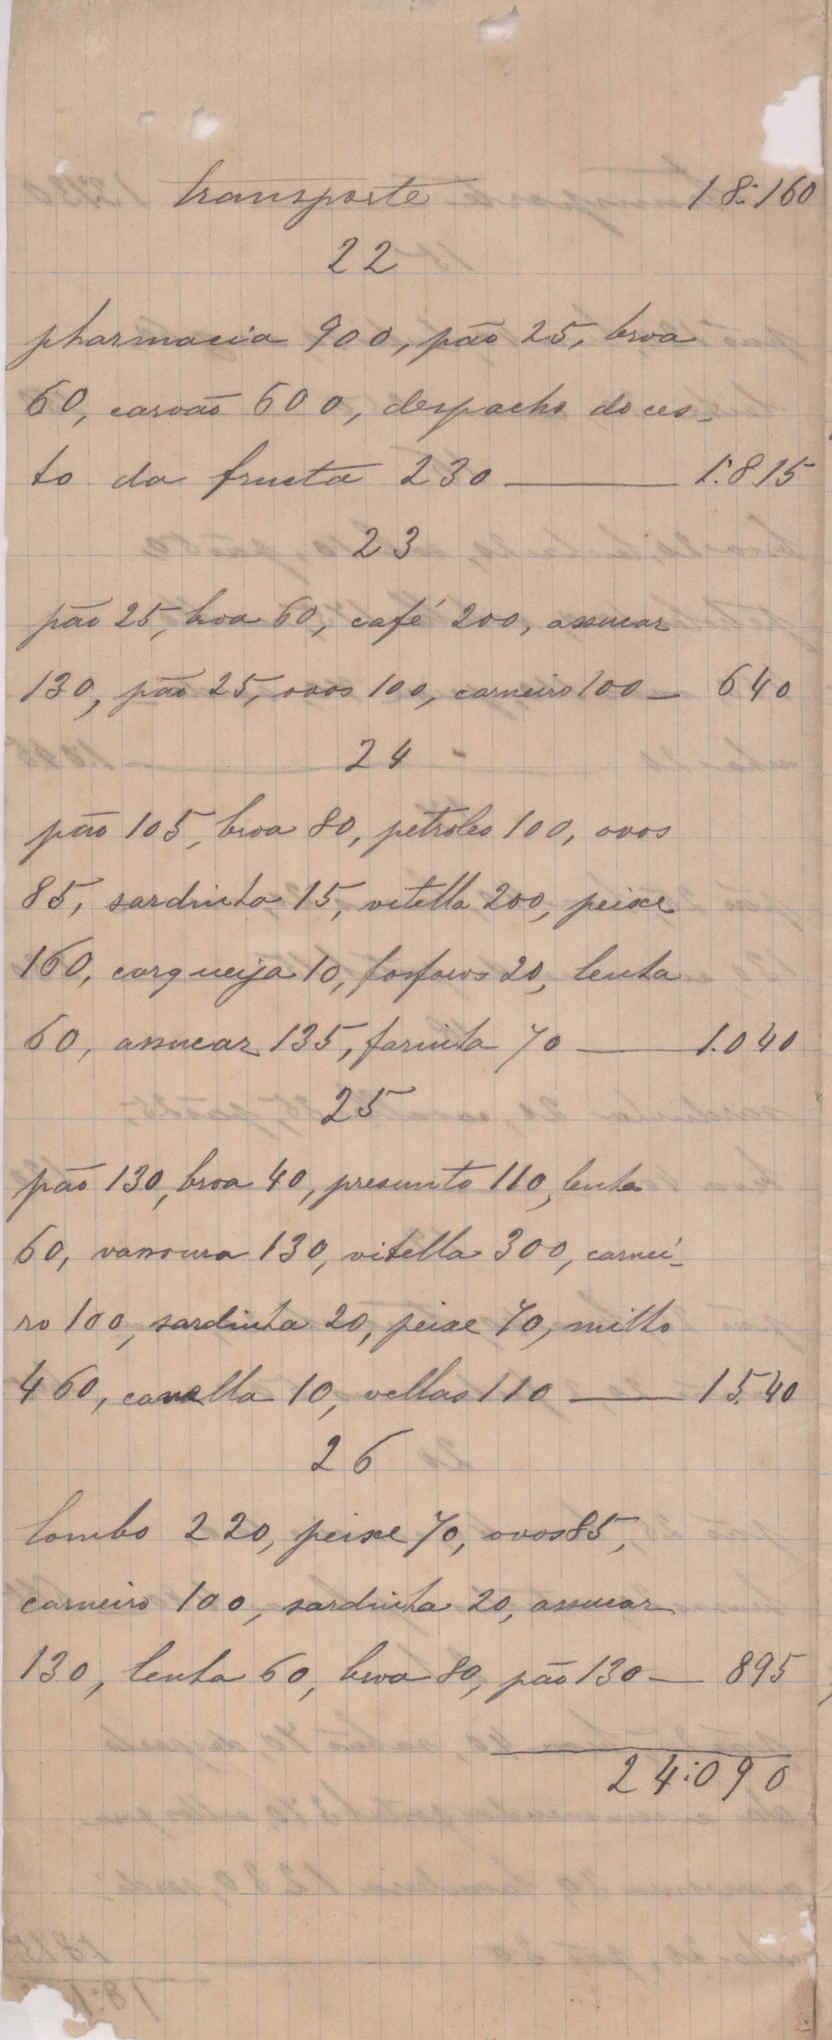 transporte 18:160
22
pharmacia 900, pão 25, broa
60, carvão 600, despacho do ces-
to da fructa 230 — 1:815
23
pão 25, broa 60, café 200, assucar
130, pão 25, ovos 100, carneiro 100 — 640
24
pão 105, broa 80, petroleo 100, ovos
85, sardinha 15, vitella 200, peixe
160, carqueija 10, fosforos 20, lenha
60, assucar 135, farinha 70 — 1.040
25
pão 130, broa 40, presunto 110, lenha
60, vassoura 130, vitella 300, carnei-
ro 100, sardinha 20, peixe 70, milho
460, canella 10, vellas 110 — 15.40
26
lombo 220, peixe 70, ovos 85,
carneiro 100, sardinha 20, assucar
130, lenha 60, broa 80, pão 130 — 895
24:090